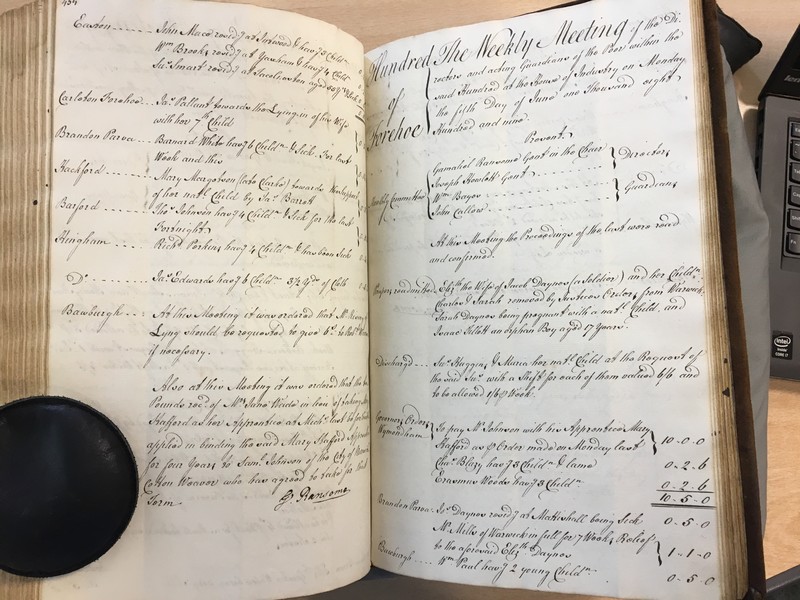 434
Easton John Mace resid.g at Intwood & hav.g 3 Child.n
W.m Brooks resid.g at Yaxham & hav.g 4 Child.n
Ja.s Smart resid.g at Swallowton aged 80
Carleton Forehoe Ja.s Pallant towards the Lying in of his Wife
with her 7.th Child
Brandon Parva Barnard White hav.g 6 Child.n & Sick for last
Week and this
Hackford Mary Margetson (late Clarke) towards the Support
of her nat.l Child by Ja.s Barrett
Barford Tho.s Johnson hav.g 4 Child.n & Sick for the last
Fortnight
Hingham Rich.d Perkins hav.g 4 Child.n & has been Sick
D.o Ja.s Edwards hav.g 6 Child.n 3½ Yds of Cloth
Bawburgh At this Meeting it was ordered that M.r
Lyng should be requested to give 6.d to
if necessary.
Also at this Meeting it was ordered that the
Pounds rec.d of M.rs Jane Weeds in lieu of taking
Stafford as her Apprentice at Mich.s last be
applied in binding the said Mary Stafford Apprentice
for four Years to Sam.l Johnson of the City of Norwich
Cotton Weaver who has agreed to take for that
Term
G Ransome
Hundred
of
Forehoe
The Weekly Meeting of the Di
rectors and acting Guardians of the Poor within the
said Hundred at the House of Industry on Monday
the fifth Day of June one Thousand eight
Hundred and nine.
Present
Weekly Committee
Gamaliel Ransome Gent in the Chair
Joseph Howlett Gent
Directors
W.m Bayes
John Callow
Guardians
At this Meeting the Proceedings of the last were read
and confirmed.
Paupers readmitted Eliz.th the Wife of Jacob Daynes (a Soldier) and her Child.n
Charles & Sarah removed by Justices Order from Warwick,
Sarah Daynes being pregnant with a nat.l Child, and
Isaac Tillott an orphan Boy aged 17 Years.
Discharged Sus. Huggins & Maria her nat.l Child at the Request of
the said Sus. with a Shift for each of them valued 6/6 and
to be allowed 1/6 p.r Week.
Governors Orders
Wymondham
To pay M.r Johnson with his Apprentice Mary
Stafford as p.r Order made on Monday last 10-0-0
Cha.s Blazy hav.g 3 Child.n & lame 0-2-6
Erasmus Woods hav.g 3 Child.n 0-2-6
10-5-0
Brandon Parva Ja.s Daynes resid.g at Mattishall being Sick 0-5-0
M.r Mills of Warwick in full for 7 Weeks Relief
to the aforesaid Eliz.th Daynes 1-1-0
Bawburgh W.m Paul hav.g 2 young Child.n 0-5-0
intel
inside
CORE i7